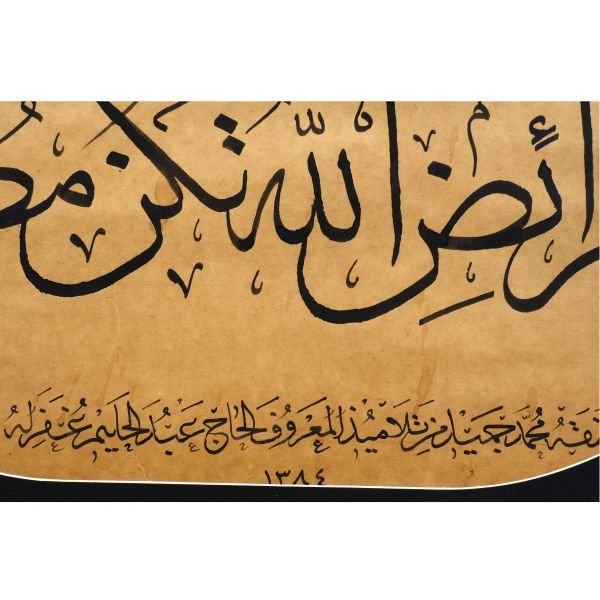 رائض الله تكن
محمد حميد من تلاميذ المعروف الحاج عبد الحليم غفر له
١٣٨٤